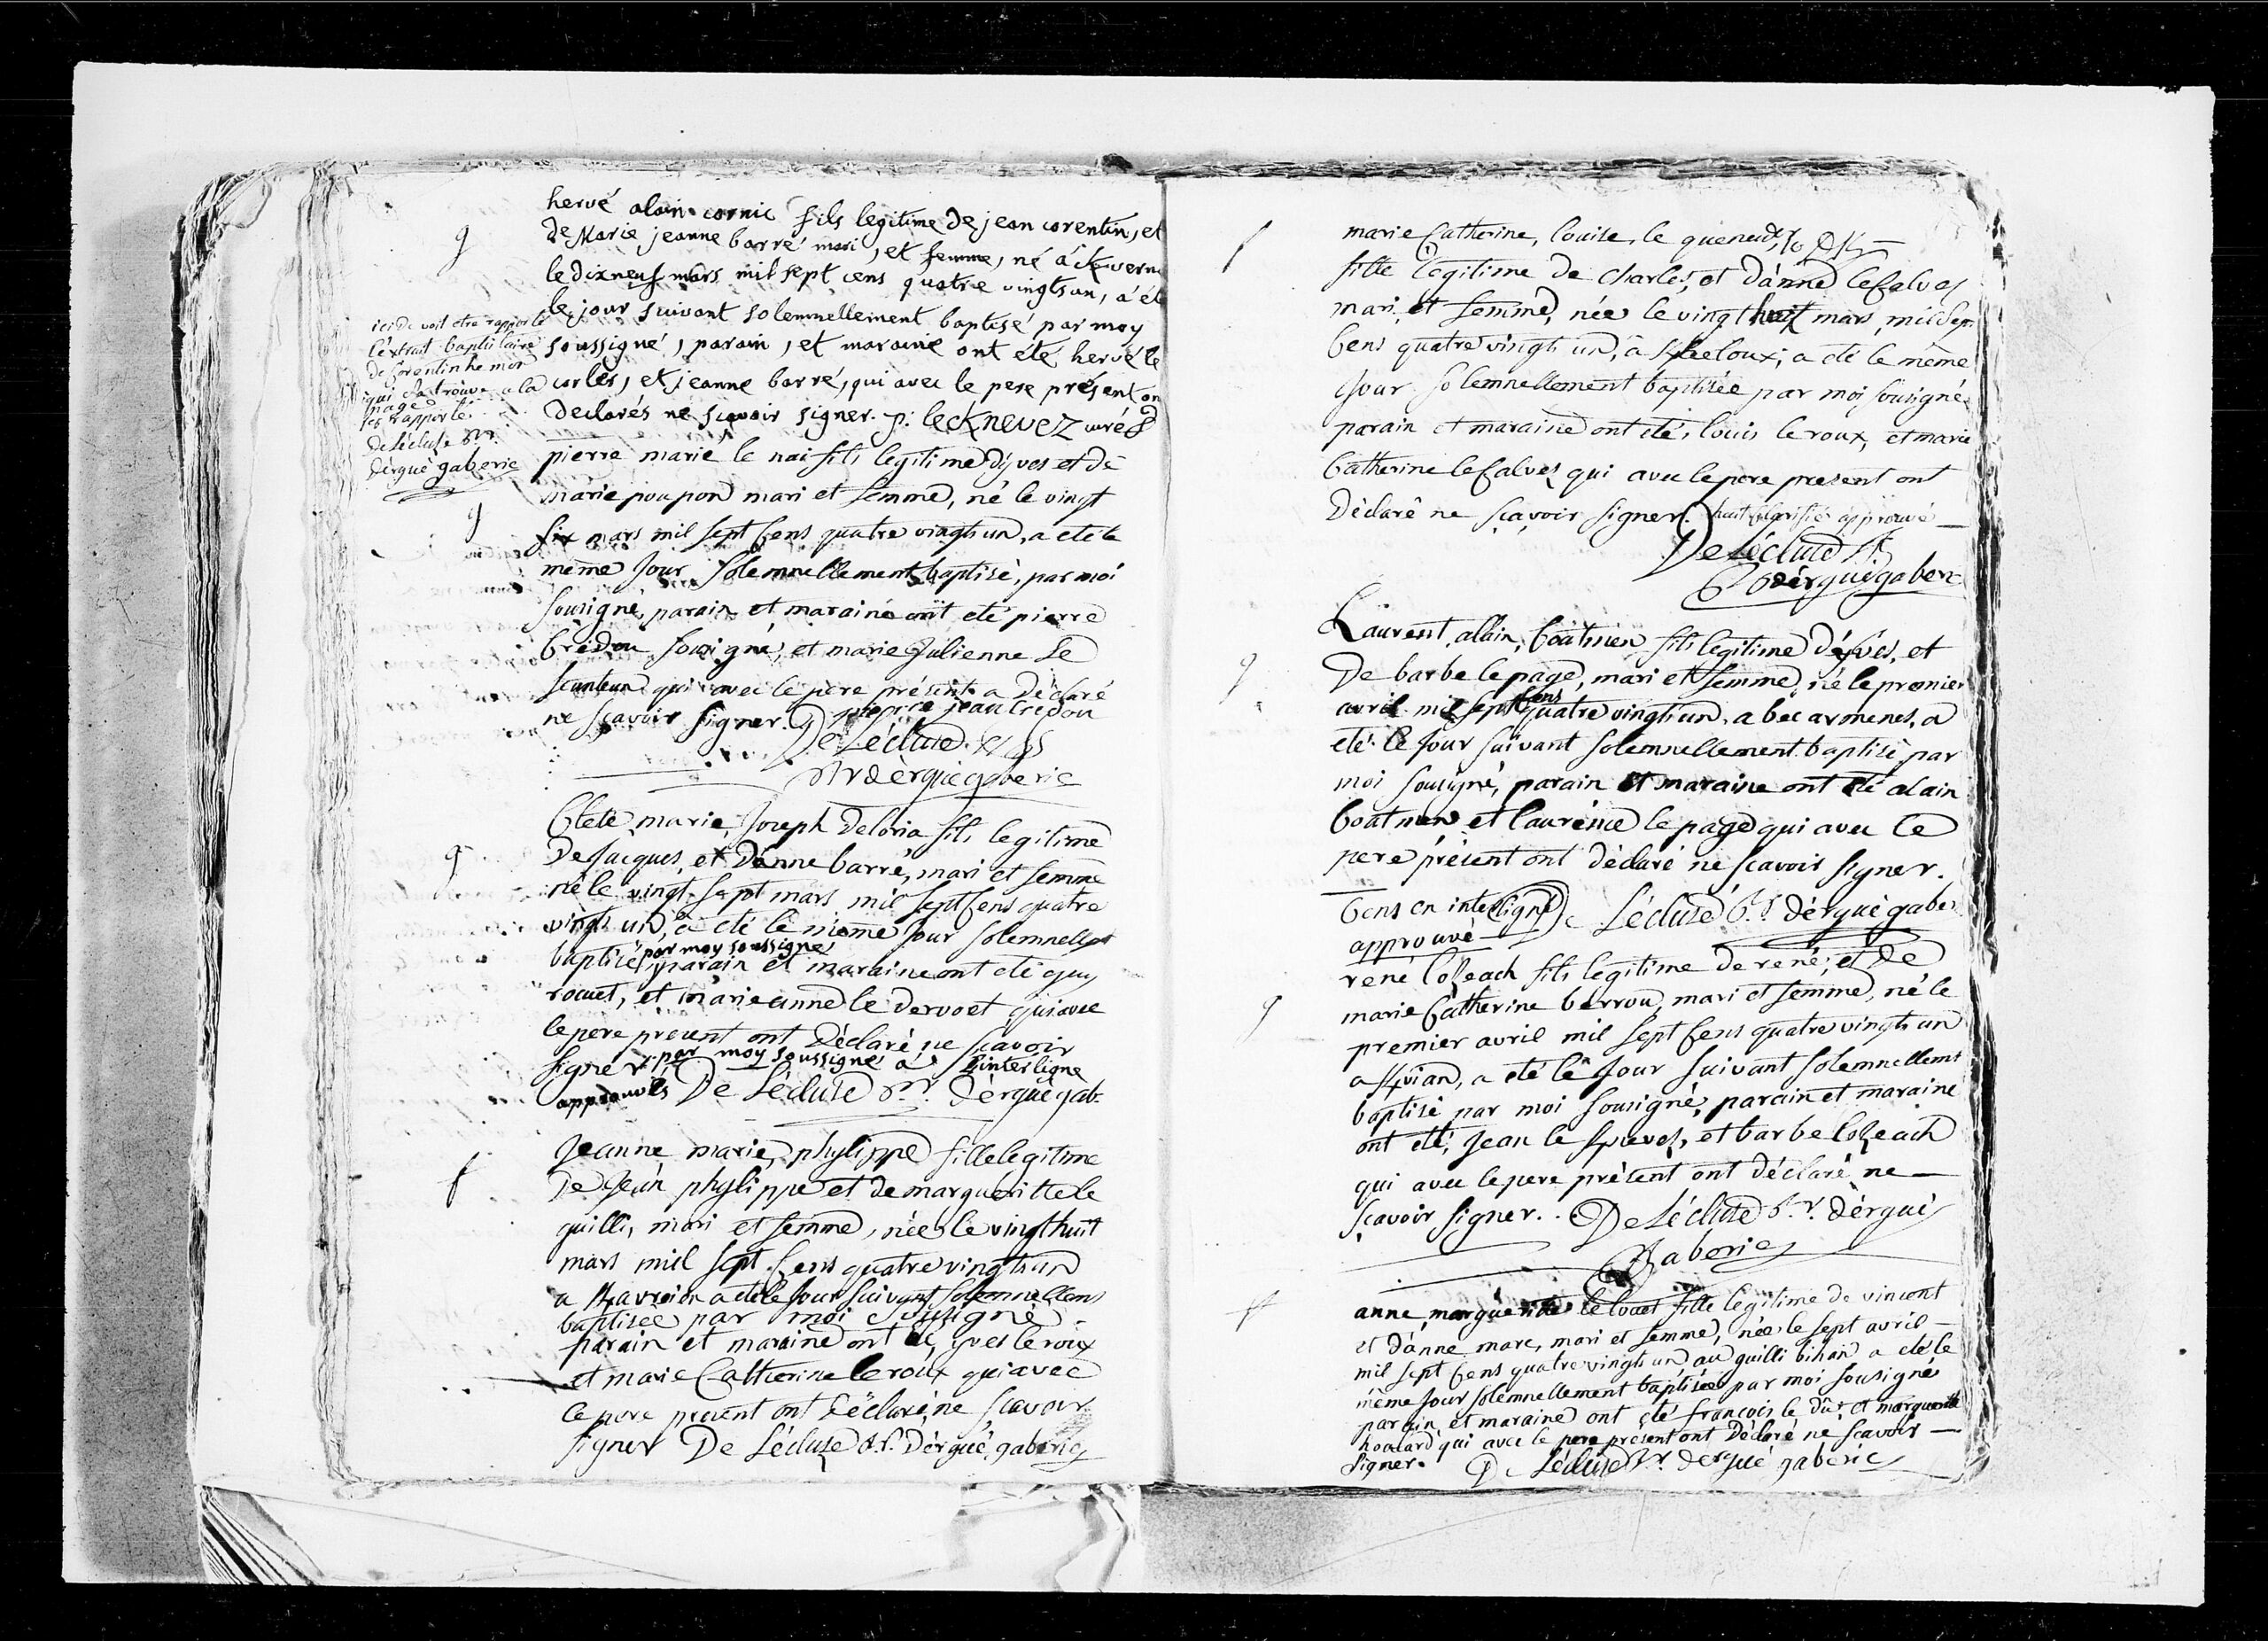 g
hervé alain cornic fils legitime de jean corentin, et
de Marie jeanne barré mari, et femme, né à
le dixneuf mars mil sept cens quatre vingts un, a été
le jour suivant solemnellement baptisé par moy
soussigné, parain, et maraine ont été hervé le
corles, et jeanne barré, qui avec le pere présent on
declarés ne sçavoir signer. p: lecknevez curé
ici de voit etre rapporté
l'extrait baptistaire
de Corentin hemor
qui se trouve a la
page
rapporté
de lécluse Rr.
dèrguè gaberic
g
pierre marie le nai fils legitime d'yves et de
marie poupon mari et femme, né le vingt
six mars mil sept cens quatre vingts un, a été le
même jour solemnellement baptisé, par moi
sousigné, parain et maraine ont été pierre
credou sousigné, et marie julienne le
qui avec le pere présent a déclaré
ne sçavoir signer. pierre jean credou
De Lécluse
Rr dèrguègaberic
g
Clete marie joseph deloria fils legitime
de jacques, et d'anne barré, mari et femme
né le vingt-sept mars mil sept cens quatre
vingts un, a été le même jour solemnellemt
baptisé par moy soussigné, parain et maraine ont été guy
rouet, et marie anne le dervoet qui avec
le pere present ont déclaré ne scavoir
signer. par moy soussigné à l'interligne
approuvés De Lécluse Rr. dèrguègab.
f
Jeanne marie, phylippe fille legitime
de jean phylippe et de margueritte le
quilli, mari et femme, née le vingt huit
mars mil sept cens quatre vingts un
a été le jour suivant solemnellemt
baptisée par moi sousigné
parain et maraine ont été, yves le roux
et marie Catherine le roux qui avec
le pere present ont déclaré ne scavoir
signer De Lécluse Rr. Dèrguè gaberic
f
marie Catherine, louise, le queneudec
fille legitime de charles, et d'anne le calvez
mari, et femme, née le vingt huit mars, mil sept
cens quatre vingts un, à a été le même
jour solemnellement baptisée par moi sousigné
parain et maraine ont été, louis le roux, et marie
Catherine le calvez qui avec le pere present ont
déclaré ne sçavoir signer. huit approuvé
De Lécluse Rr
dèrguègaberic
g
Laurent, alain, Coatmen fils legitime d'yves, et
de barbe le page, mari et femme, né le premier
avril mil sept cens quatre vingts un, a bec ar menes, a
été le jour suivant solemnellement baptisé par
moi sousigné, parain et maraine ont été alain
Coatmen et laurence le page qui avec le
pere présent ont déclaré ne scavoir signer.
Cens en interligne De Lécluse Rr dèrguègaber
approuvé
g
rené Cozeach fils legitime de rené, et de
marie Catherine berrou, mari et femme, né le
premier avril mil sept cens quatre vingts un
a a été le jour suivant solemnellemt
baptisé par moi sousigné, parain et maraine
ont été, jean le et barbe Cozeach
qui avec le pere présent ont déclaré ne
scavoir signer. De Lécluse Rr. dèrguè
Gaberic
f
anne, margueritte le louet fille legitime de vincent
et d'anne marc, mari et femme, née le sept avril
mil sept cens quatre vingts un au quilli bihan a été le
même jour solemnellement baptisée par moi sousigné
parain et maraine ont été françois le dû, et margueritte
hoalard qui avec le pere présent ont déclaré ne scavoir
signer. De Lécluse Rr. dèrguè gabéric